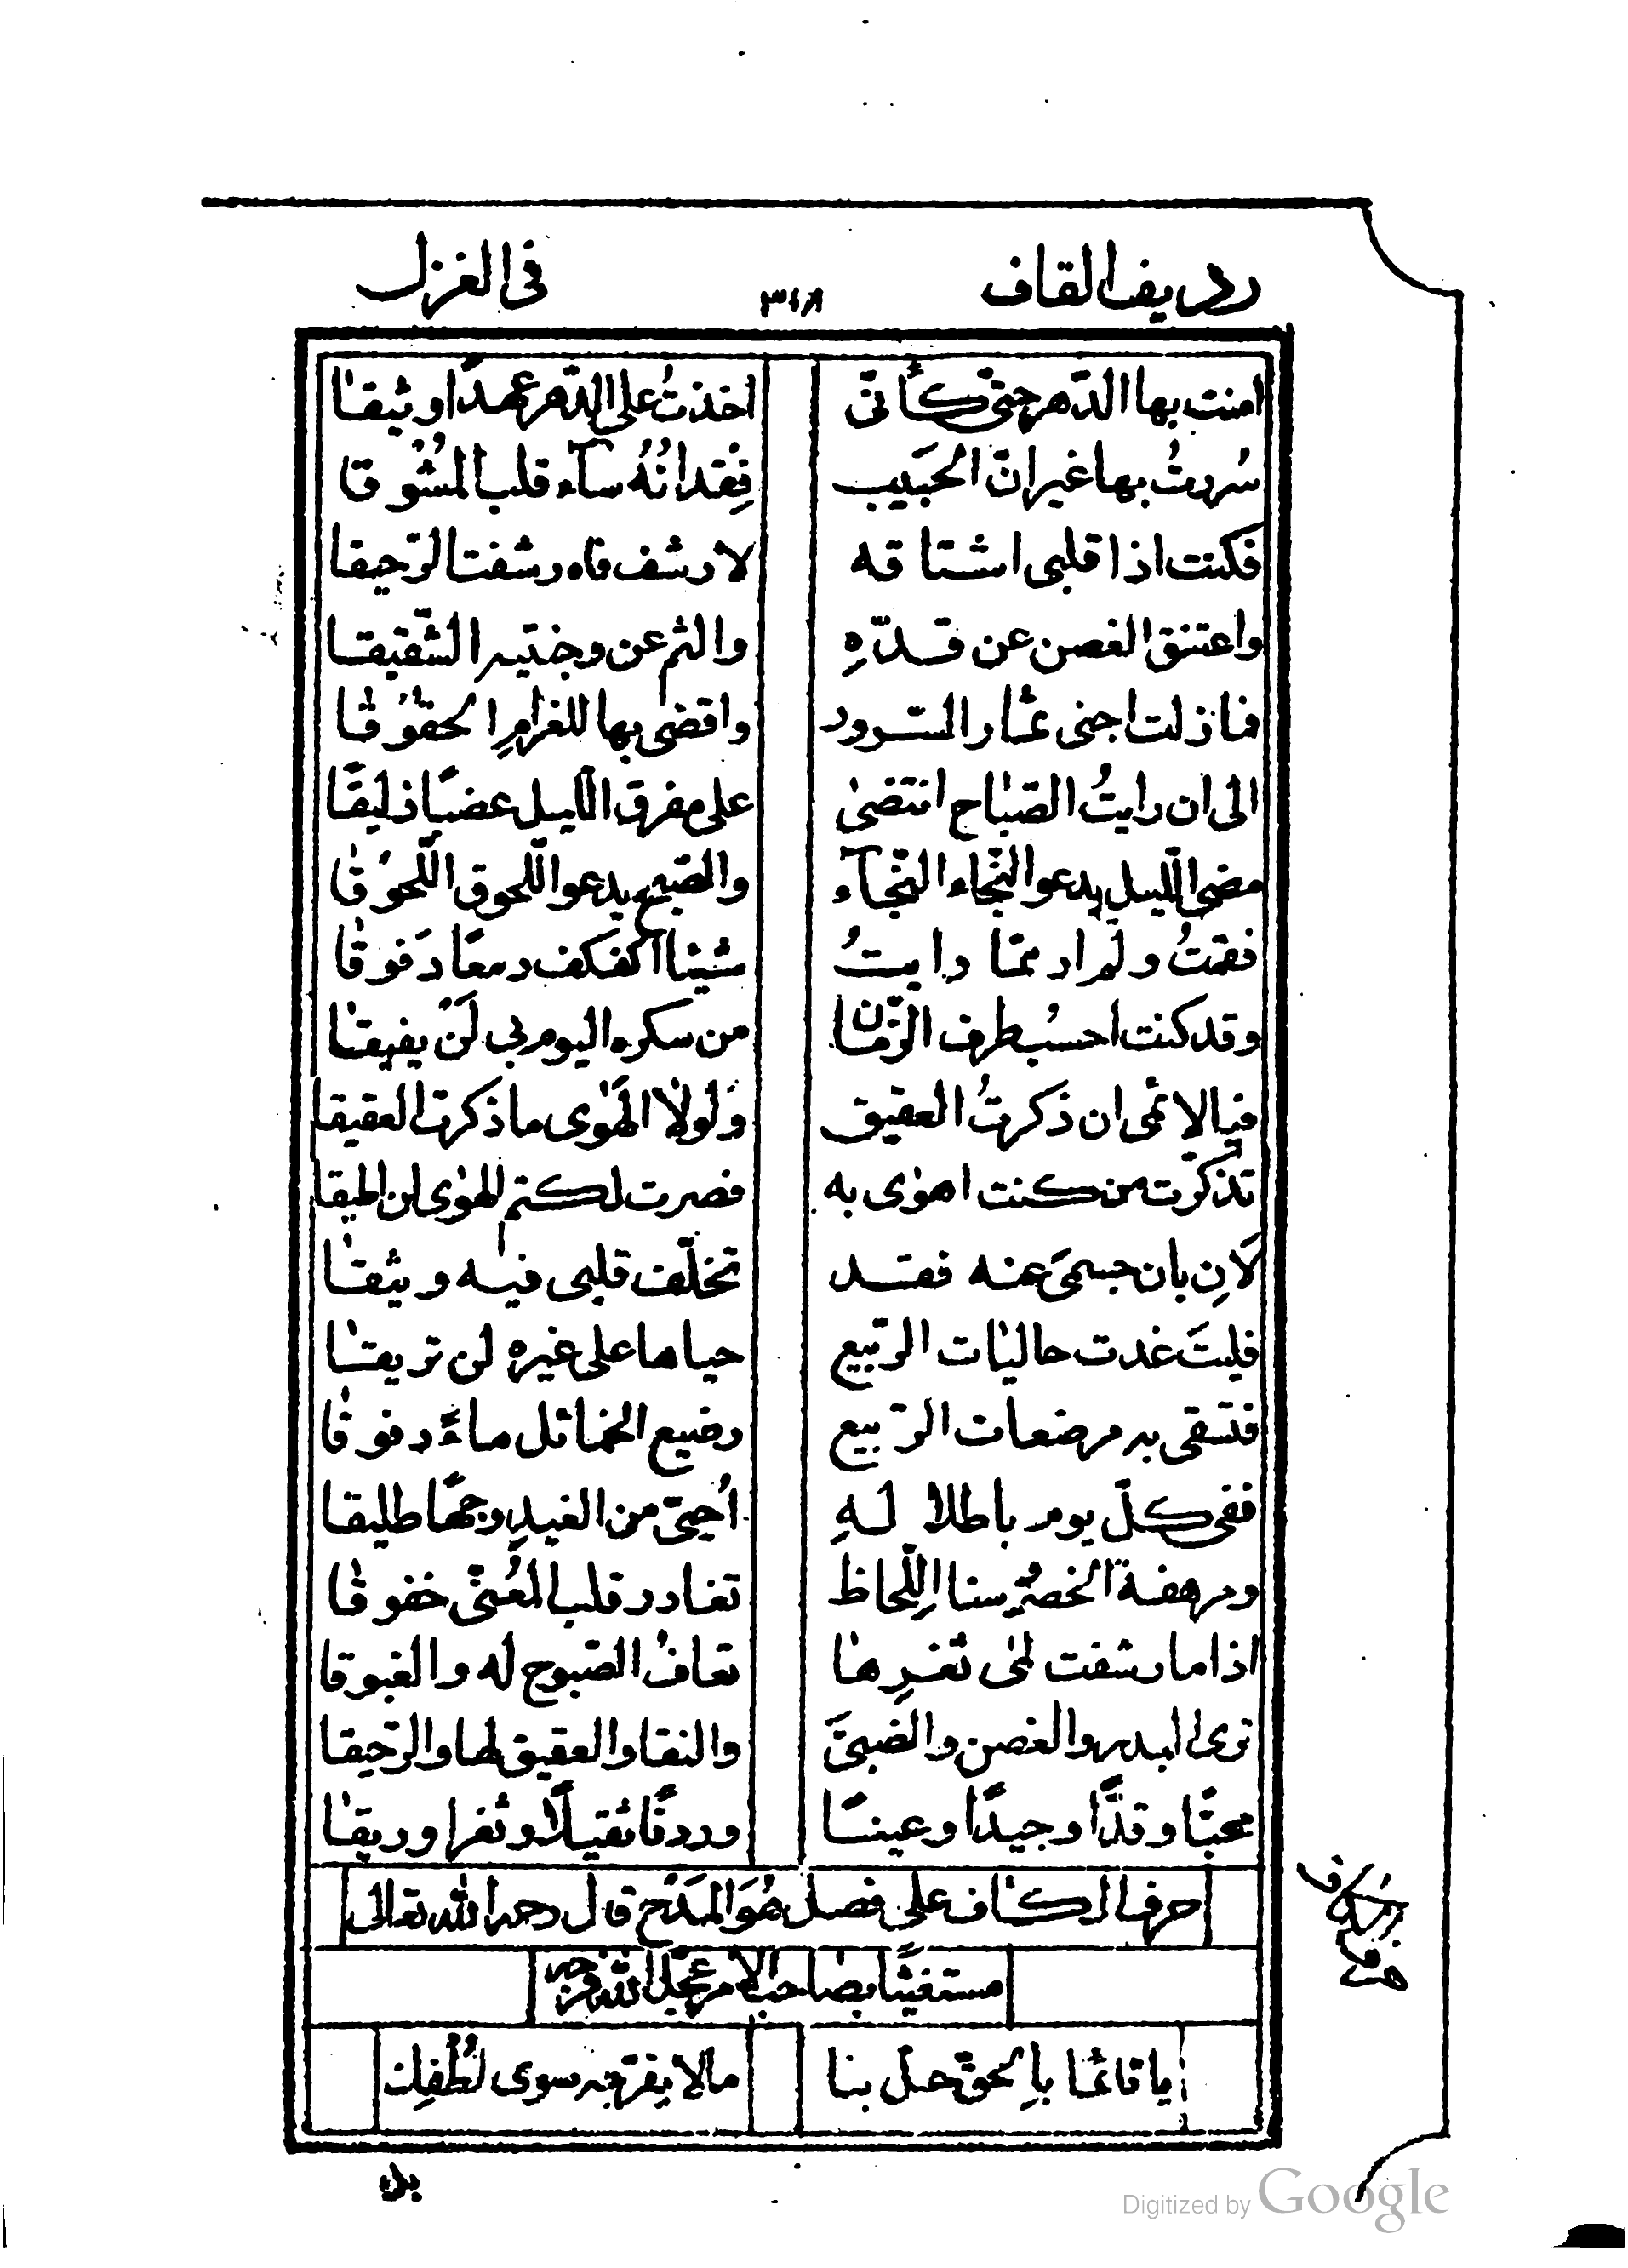 رديف القاف ٣٤٨ في الغزل
امنت بها الدّهر حتّى كأنّي اخذتُ على الدّهر عهدًا وثيقا
سُررتُ بها غير انّ الحَبيب فِقدانُهُ سآء قلب المشُوقا
فكنت اذا قلبى اشتاقه لارشف فاه رشفت الرّحيقا
واعتنق الغصن عن قدّهِ والثم عن وجنتيه الشّقيقا
فمازلت اجنى ثمار السّرور واقضى بها للغرامِ الحقُوقا
الى ان رايتُ الصّباح انتضىٰ على مفرق اللّيل عضبًا ذليقًا
مضى اللّيل يدعو النّجاء النّجآء والصّبح يدعو اللّحوق اللّحوُقا
فقمتُ ولم ار ممّا رايتُ شيئا اكفكف دمعًا دَفوقا
وقد كنت احسبُ طرف الزّمان من سكره اليوم بى لَنْ يفيقا
فيالائمى ان ذكرتُ العقيق وَلولا الهَوٰى ما ذكرت العقيقا
تذكّرت من كنت اهوٰى به فصرت لكتم الهوٰى لن اطيقا
لَاِن بان جسمىَ عنه فقد تخلّف قلبى فيه وثيقا
فليتَ غدت حاليات الرّبيع حياها على غيره لن تريقا
فتسقى به مرضعات الرّبيع رضيع الخمائل ماءً دفوقا
ففى كلّ يوم باطلالهِ اُحيّى من الغيدِ وجهًا طليقا
ومرهفة الخصرِ سنا اللِّحاظ تغادر قلب المُعنّى خفوقا
اذا ما رشفت لمٰى ثغرِها تعافُ الصّبوح له والغبوقا
ترى البدر والغصن والضبىَ والنقا والعقيق لها والرّحيقا
محيّا وقدًّا وجيدًا وعينًا وردفًا ثقيلًا وثغرا وريقا
حرف الكاف على فصل هُوَ المَدْح قال رحمه الله تعالى
مستغيثًا بصاحب الامر عجّل الله فرجه
ياقائمًا باِلحقّ حلّ بنا مالا يفرّجه سوى لُطُفِك
حرف الكاف
Digitized by Google